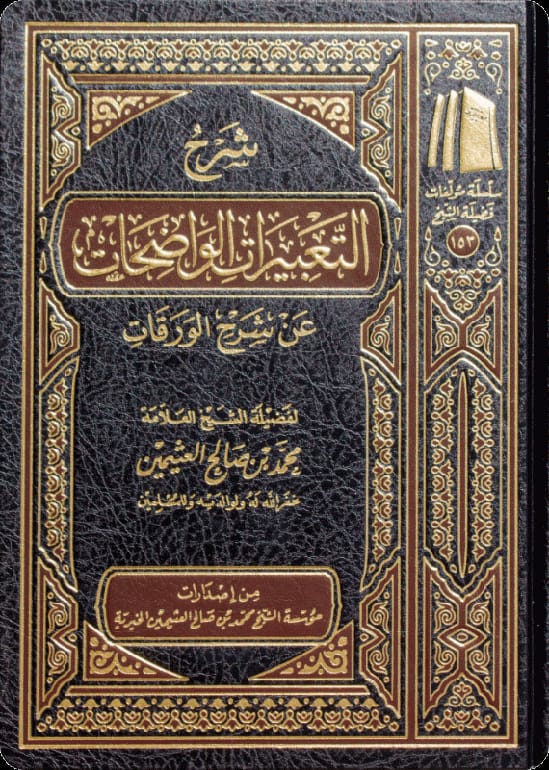 شَرْحُ
التَّعْبِيرَاتِ الوَاضِحَاتِ
عَنْ شَرْحِ الوَرَقَاتِ
لفَضيلَة الشَّيخ العَلّامَة
محمّد بن صَالح العثيمين
غفَر اللّه لَهُ ولوالدَيه وَللمُسْلِمين
مِن إصْدَارات
مؤسّسة الشّيخ محمّد بن صَالح العثيمين الخيريّة
سِلسِلَة مُؤلّفات
فَضيلَة الشّيخ
١٥٣